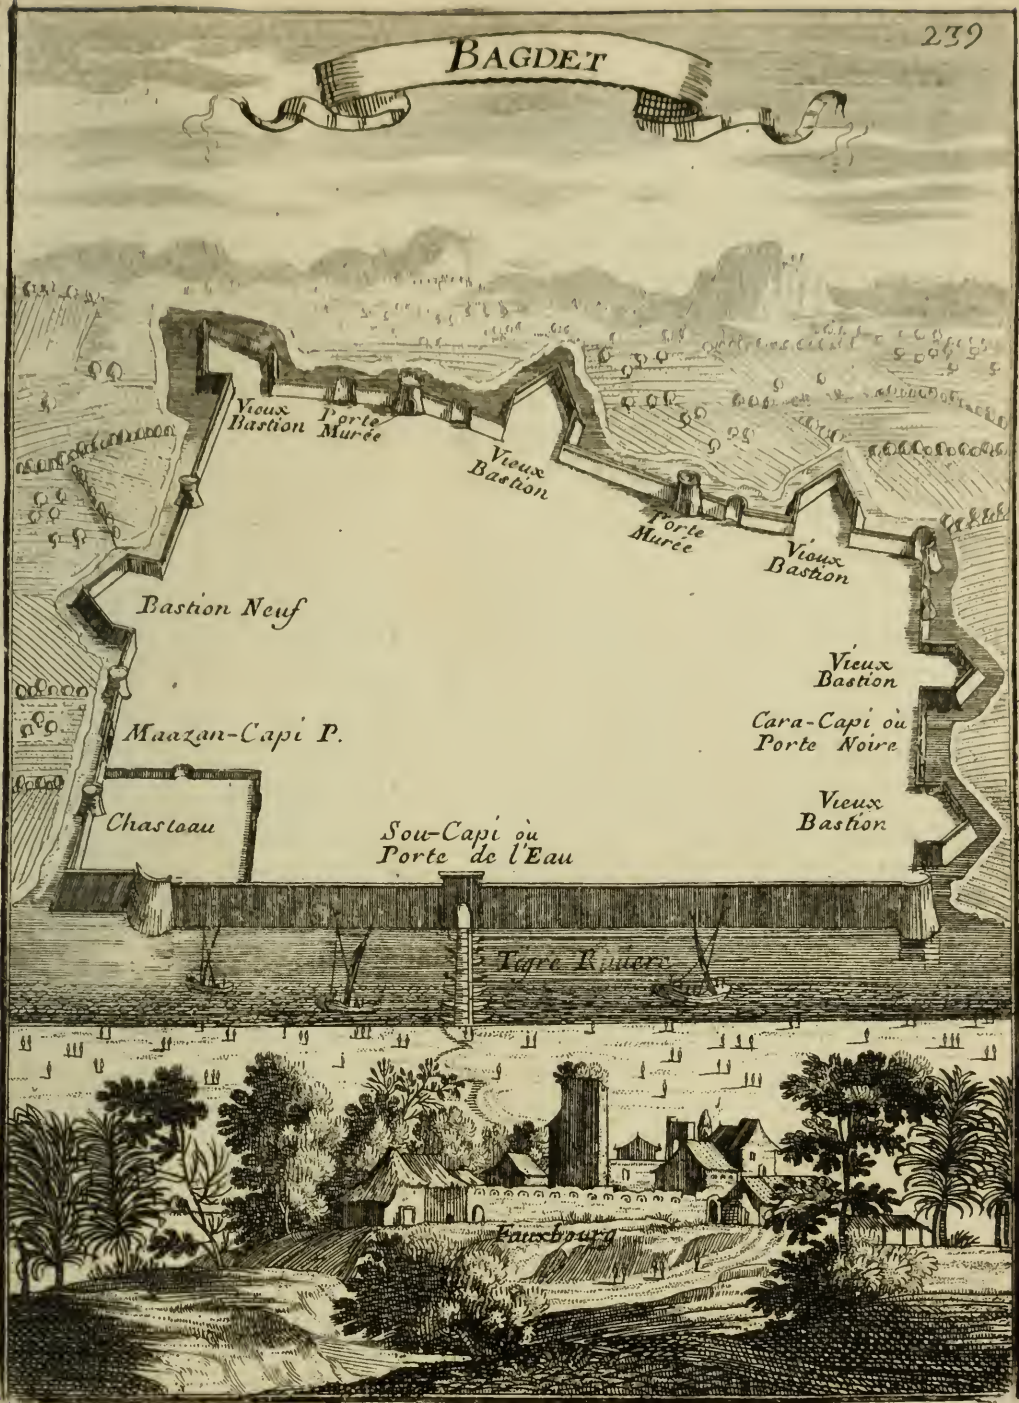 239
BAGDET
Vieux
Bastion
Porte
Murée
Vieux
Bastion
Porte
Murée
Vieux
Bastion
Bastion Neuf
Vieux
Bastion
Maazan-Capi P.
Cara-Capi où
Porte Noire
Chasteau
Vieux
Bastion
Sou-Capi où
Porte de l'Eau
Tigre Riviere
Fauxbourg